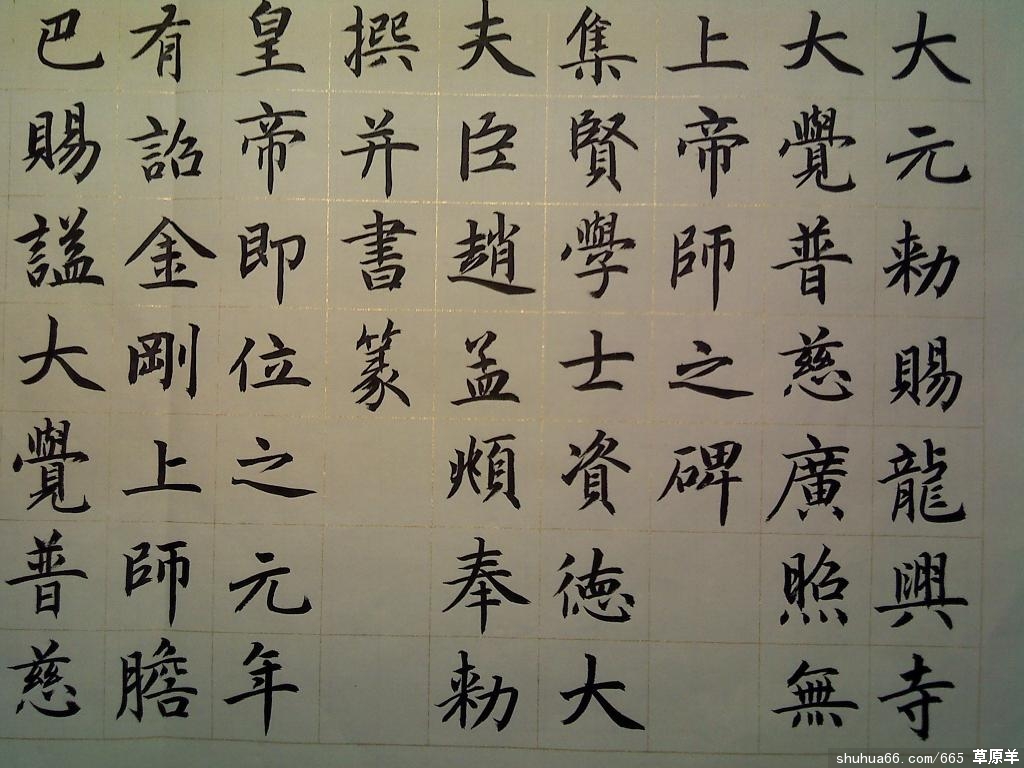 大元勅賜龍興寺
大覺普慈廣照無
上帝師之碑
集賢學士資德大
夫臣趙孟頫奉勅
撰并書篆
皇帝即位之元年
有詔金剛上師膽
巴賜謚大覺普慈
shuhua66.com/665 草原羊